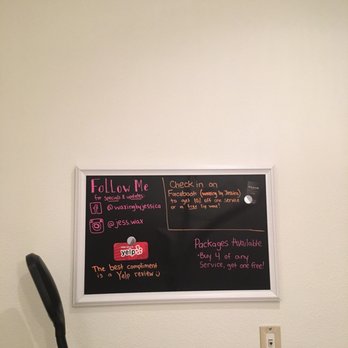 Follow Me
for specials & updates
@waxingbyjessica
@jess.wax
yelp
The best compliment
is a Yelp review :)
Check in on
Facebook (waxing by Jessica)
to get $5 off one service
or a free lip wax!
Packages Available
• Buy 4 of any
Service, get one free!